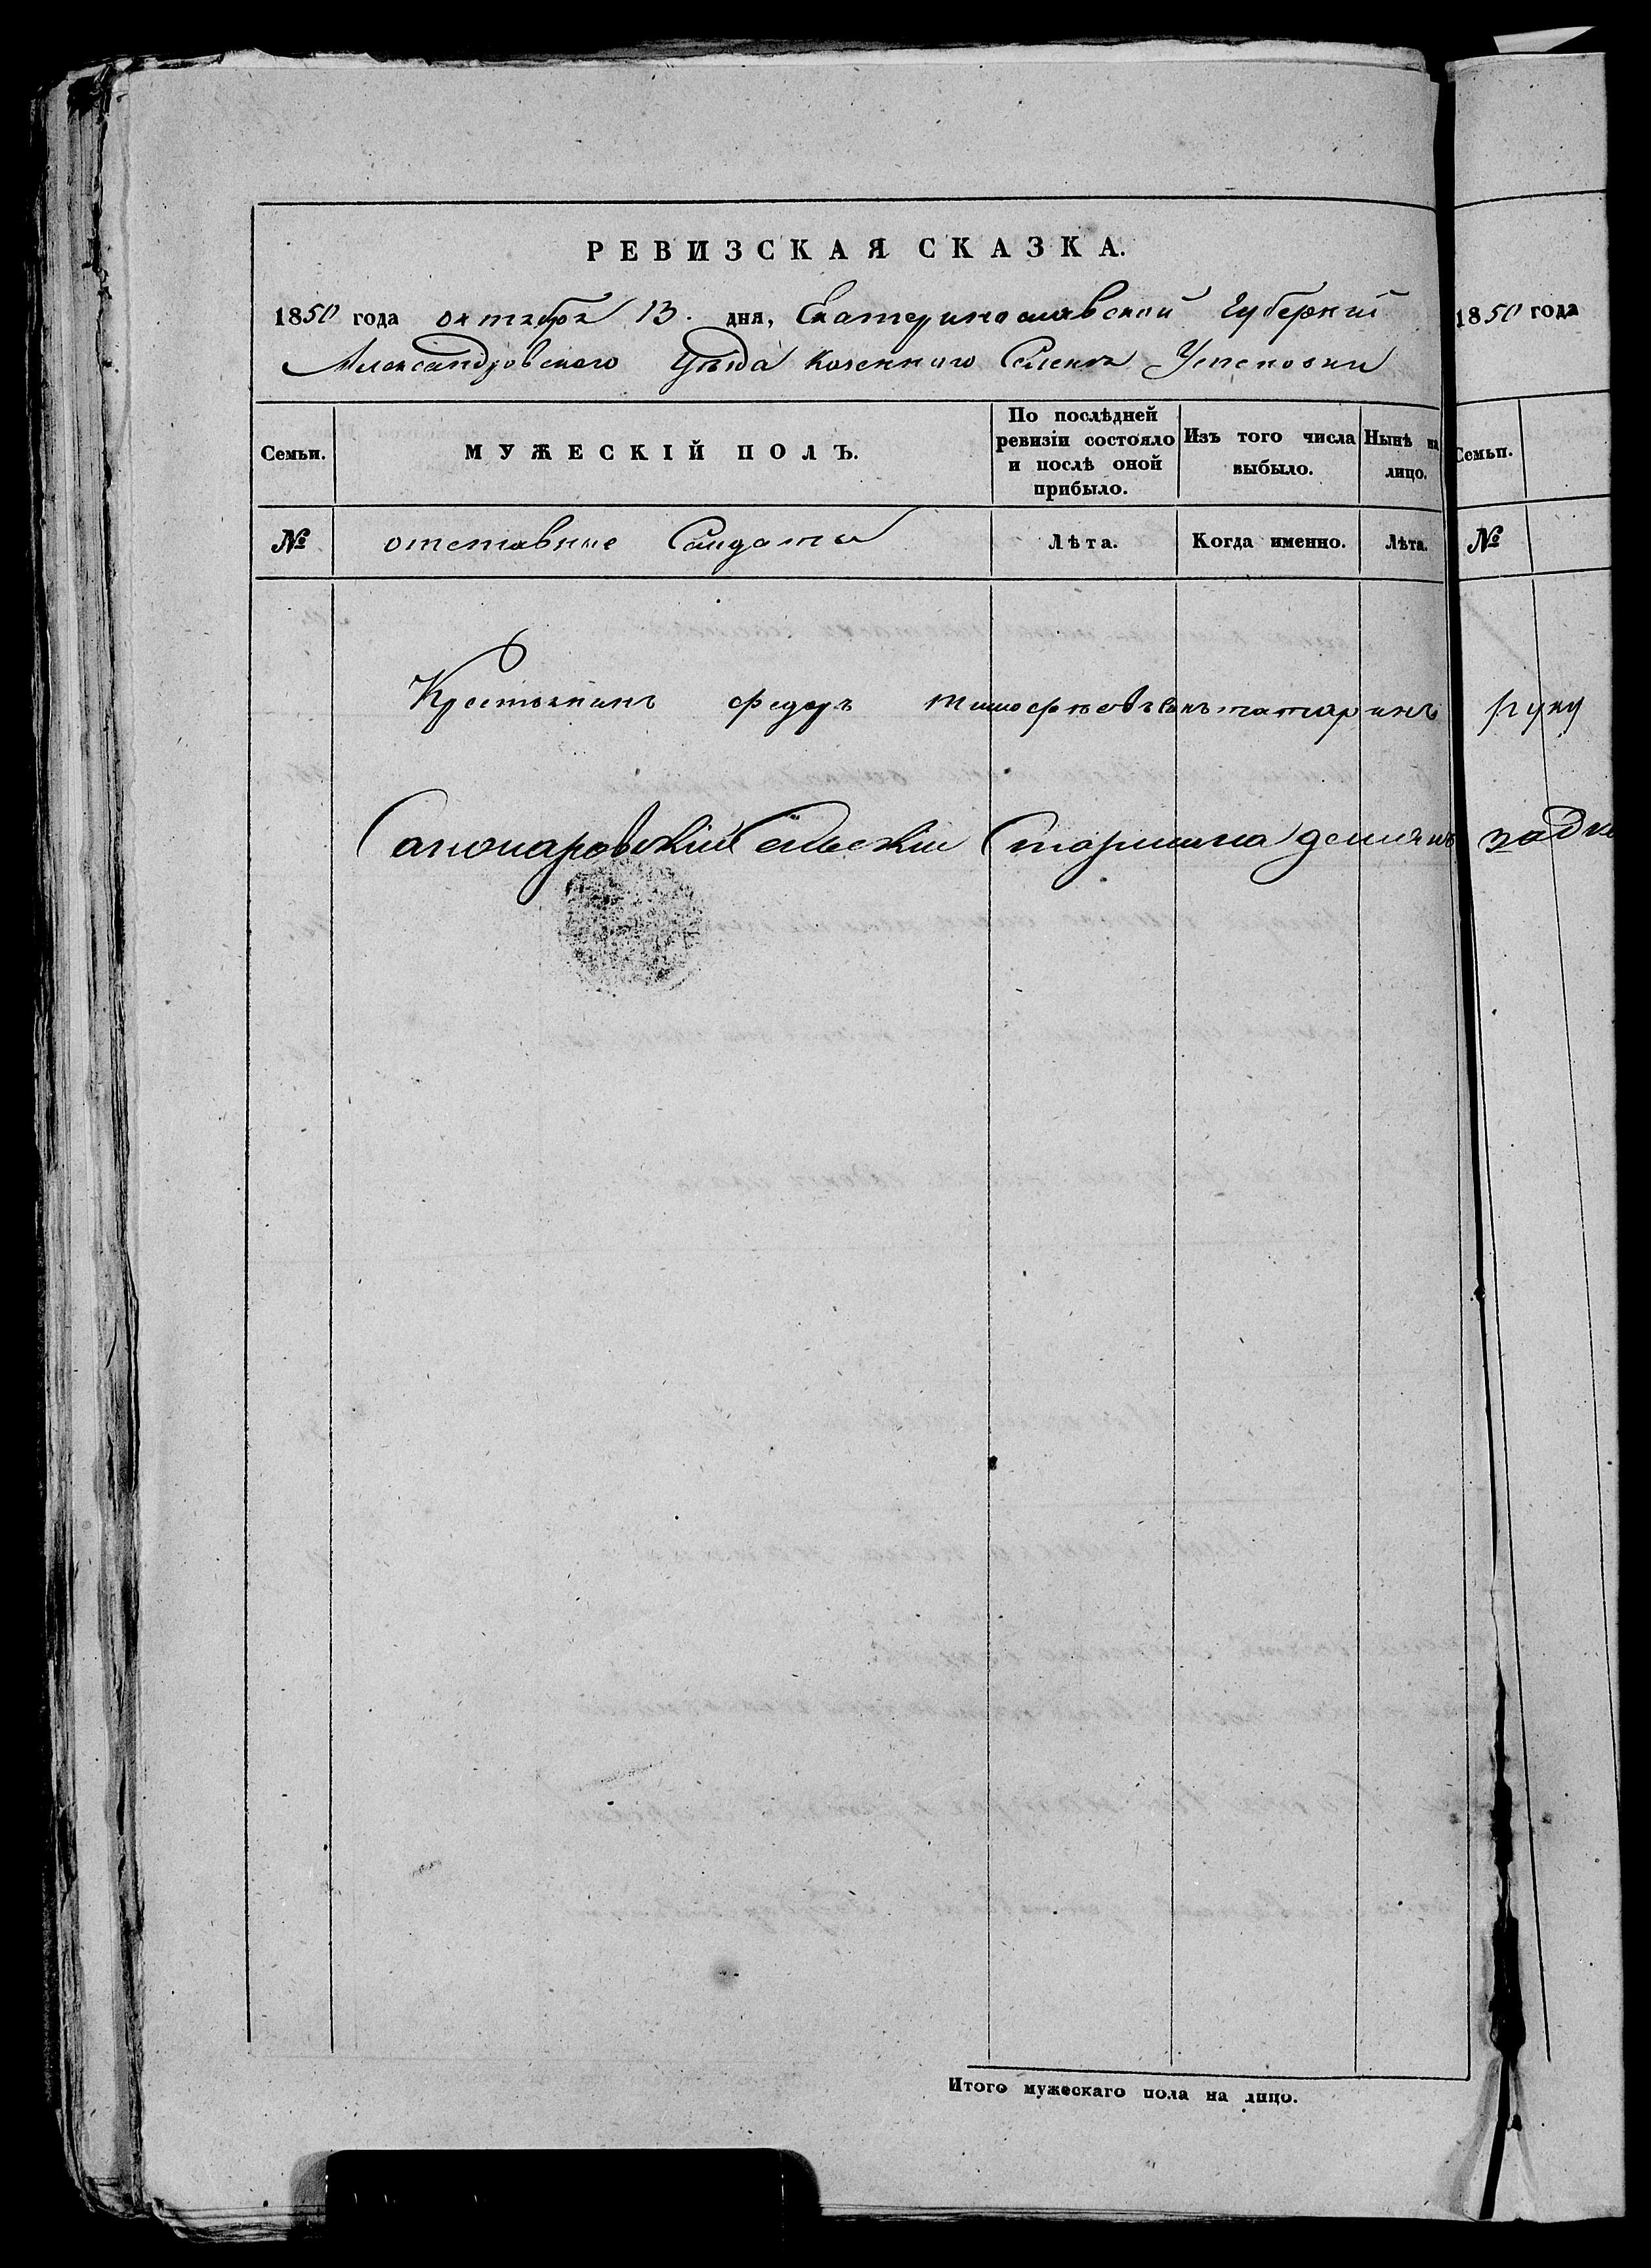 РЕВИЗСКАЯ СКАЗКА.
1850 года октября 13. дня, Екатеринославской Губернии
Александровского Уѣзда казенного Селения Успеновки
Семьи. МУЖЕСКІЙ ПОЛЪ. По послѣдней ревизіи состояло и послѣ оной прибыло. Изъ того числа выбыло. Нынѣ на лицо.
№ отставные Солдаты Лѣта. Когда именно. Лѣта.
Крестьянинъ федоръ татаринъ
Сельскій Старшина демянъ
Итого мужескаго пола на лицо.
1850 года
Семьи.
№
руку